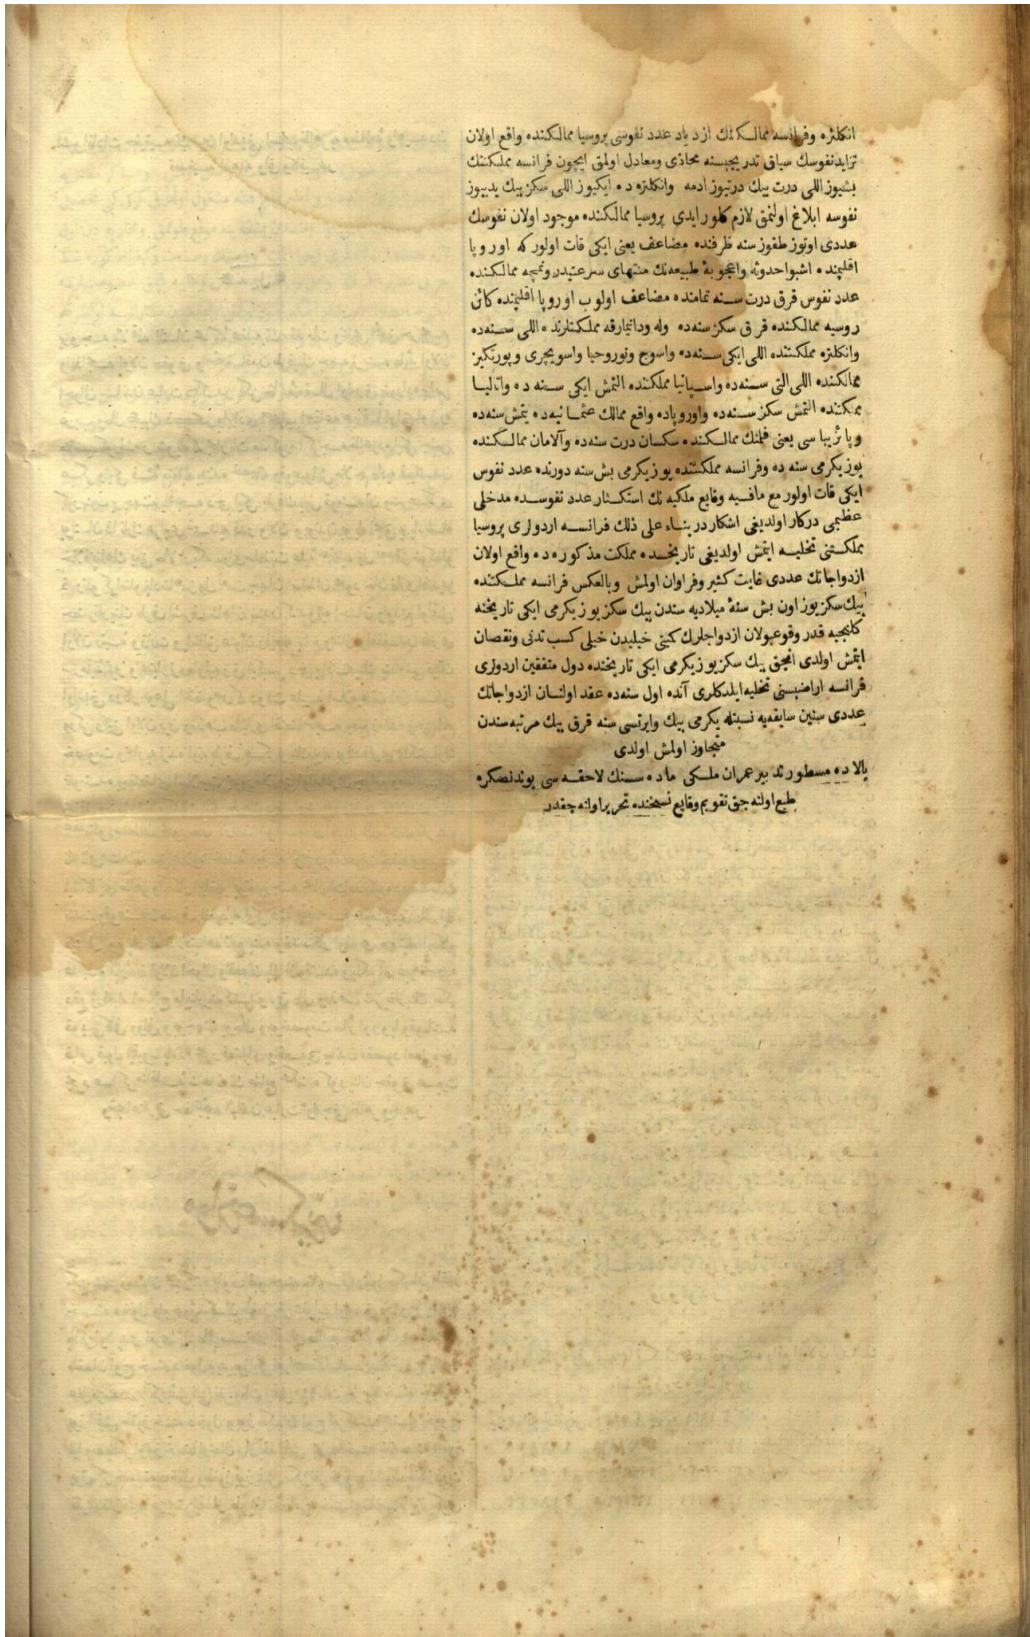 انكلتره وفرانسه ممالكنك ازدياد عدد نفوسى پروسيا ممالكنده واقع اولان
تزايد نفوسك سياق تدريجيسنه محاذى ومعادل اولمق ايچون فرانسه مملكتنك
بشيوز اللى درت بيك درتيوز ادمه وانكلتره ده ايكيوز اللى سكز بيك يديوز
نفوسه ابلاغ اولنمق لازم كلور ايدى پروسيا ممالكنده موجود اولان نفوسك
عددى اوتوز طقوز سنه ظرفنده مضاعف يعنى ايكى قات اولور كه اوروپا
اقليمنده اشبو احدوثه واعجوبۀ طبيعه نك منتهاى سرعتيدر ونمچه ممالكنده
عدد نفوس قرق درت سنه تمامنده مضاعف اولوب اوروپا اقليمنده كائن
روسيه ممالكنده قرق سكز سنه ده وله ودانيمارقه مملكتلرنده اللى سنه ده
وانكلتره مملكتنده اللى ايكى سنه ده واسوج ونوروجيا واسويچرى وپورتكيز
ممالكنده اللى التى سنه ده واسپانيا مملكتنده التمش ايكى سنه ده واتاليا
مملكتنده التمش سكز سنه ده واوروپاده واقع ممالك عثمانيه ده يتمش سنه ده
وپائزيباسى يعنى فلمنك ممالكنده سكسان درت سنه ده وآلامان ممالكنده
يوز يكرمى سنه ده وفرانسه مملكتنده يوز يكرمى بش سنه دورنده عدد نفوس
ايكى قات اولور مع مافيه وقايع ملكيه نك استكثار عدد نفوسده مدخلى
عظيمى دركار اولديغى اشكاردر بناء على ذلك فرانسه اردولرى پروسيا
مملكتنى تخليه ايتمش اولديغى تاريخده مملكت مذكوره ده واقع اولان
ازدواجاتك عددى غايت كثير وفراوان اولمش وبالعكس فرانسه مملكتنده
بيك سكز يوز اون بش سنۀ ميلاديه سندن بيك سكز يوز يكرمى ايكى تاريخنه
كلنجيه قدر وقوعبولان ازدواجلرك كميتى خيليدن خيلى كسب تدنى ونقصان
ايتمش اولدى انجق بيك سكز يوز يكرمى ايكى تاريخنده دول متفقين اردولرى
فرانسه اراضيسنى تخليه ايلدكلرى آنده اول سنه ده عقد اولنان ازدواجاتك
عددى سنين سابقه يه نسبتله يكرمى بيك وايرتسى سنه قرق بيك مرتبه سندن
متجاوز اولمش اولدى
بالاده مسطور تدبير عمران ملكى ماده سنك لاحقه سى بوندنصكره
طبع اولنه جق تقويم وقايع نسخنده تحرير اولنه جقدر